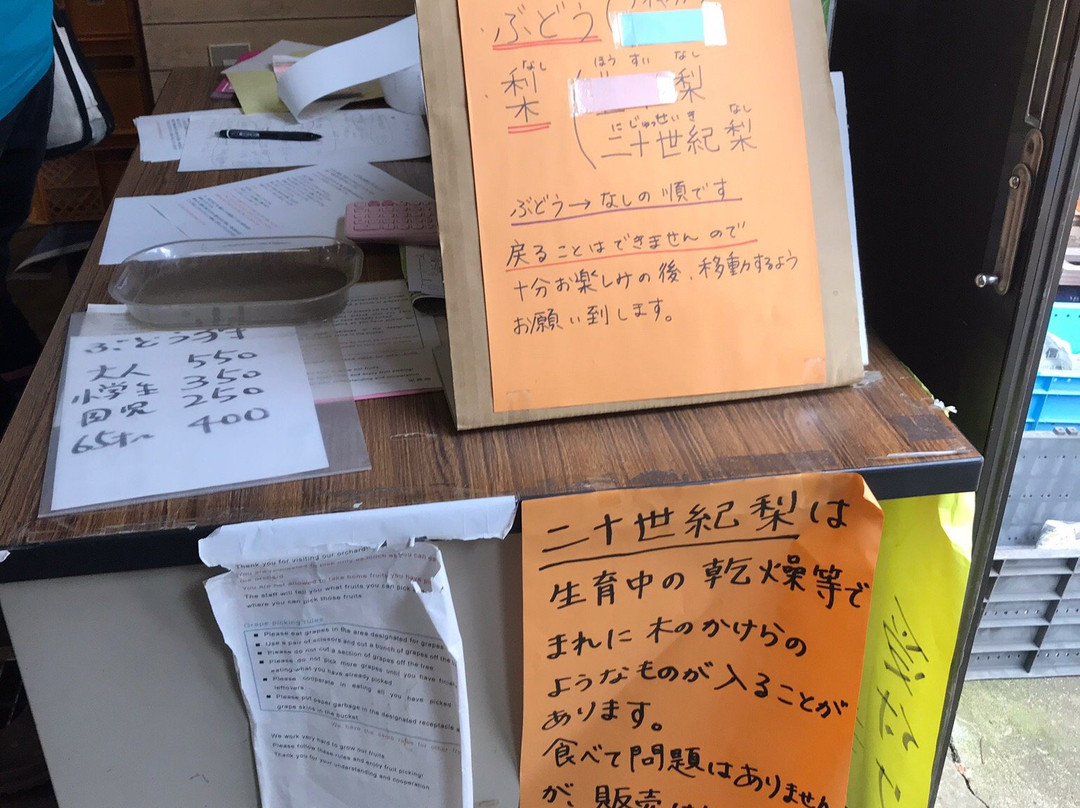 ぶどう
なし
梨
ほう すい なし
梨
にじゅっせいき なし
二十世紀梨
ぶどう→なしの順です
戻ることはできませんので
十分お楽しみの後、移動するよう
お願い到します。
ぶどう狩り
大人 550
小学生 350
園児 250
65才〜 400
二十世紀梨は
生育中の乾燥等で
まれに木のかけらの
ようなものが入ることが
あります。
食べて問題はありません
が、販売は
Thank you for visiting our orchard!
You are not allowed to take home fruits you have p
The staff will tell you what fruits you can pick
where you can pick those fruits.
Grape picking rules
Please eat grapes in the area designated for grapes
Use a pair of scissors and cut a bunch of grapes off the
Please do not cut a section of grapes off the tree.
Please do not pick more grapes until you have finish
eating what you have already picked
Please cooperate in eating all you have picked
leftovers.
Please put paper garbage in the designated receptacle a
grape skins in the bucket.
We have the same rules for other fru
We work very hard to grow our fruits.
Please follow these rules and enjoy fruit picking!
Thank you for your understanding and cooperation.